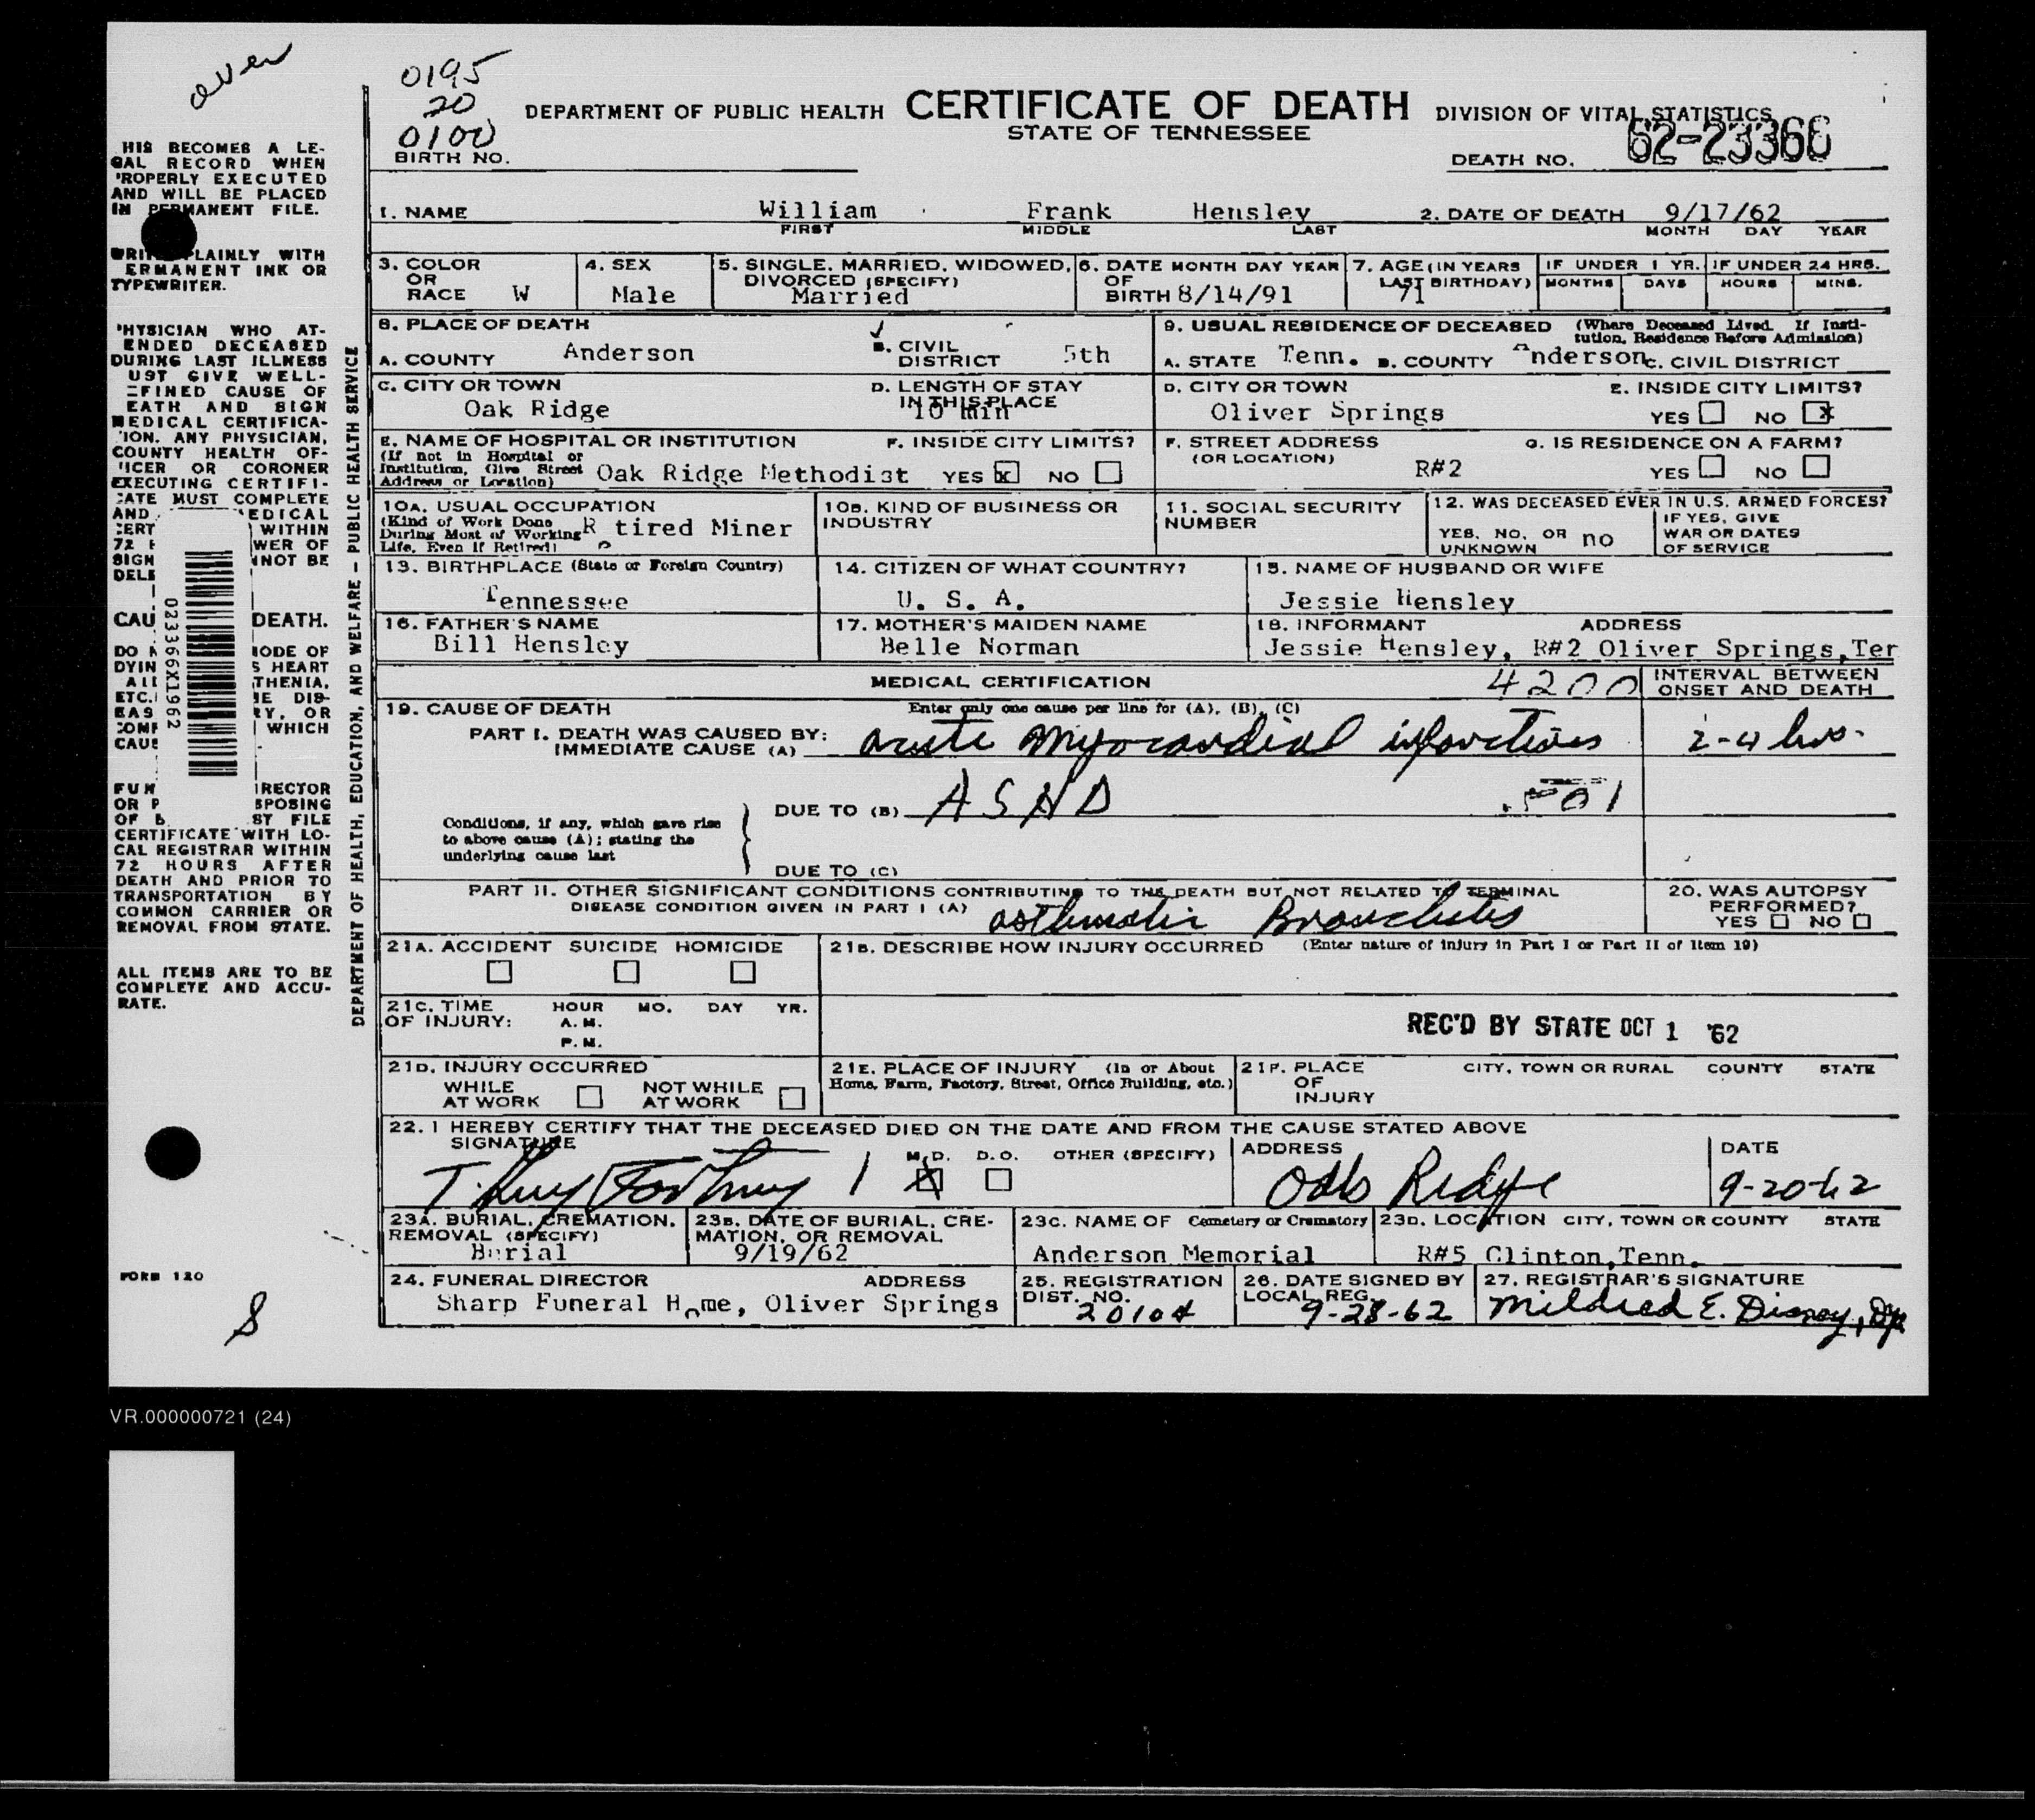 over
0195
20
0100
BIRTH NO.
DEPARTMENT OF PUBLIC HEALTH CERTIFICATE OF DEATH DIVISION OF VITAL STATISTICS
STATE OF TENNESSEE
DEATH NO. 62-23366
HIS BECOMES A LE-
GAL RECORD WHEN
'ROPERLY EXECUTED
AND WILL BE PLACED
IN PERMANENT FILE.
PLAINLY WITH
ERMANENT INK OR
TYPEWRITER.
'HYSICIAN WHO AT-
ENDED DECEASED
DURING LAST ILLNESS
UST GIVE WELL-
EFINED CAUSE OF
EATH AND SIGN
MEDICAL CERTIFICA-
'ION. ANY PHYSICIAN,
COUNTY HEALTH OF-
'ICER OR CORONER
EXECUTING CERTIFI-
CATE MUST COMPLETE
AND EDICAL
CERT WITHIN
72 WER OF
SIGN NNOT BE
DELE
CAU DEATH.
DO IODE OF
DYIN S HEART
AIL THENIA,
ETC. IE DIS-
EAS RY, OR
COMP WHICH
CAUS
FUN IRECTOR
OR P SPOSING
OF B ST FILE
CERTIFICATE WITH LO-
CAL REGISTRAR WITHIN
72 HOURS AFTER
DEATH AND PRIOR TO
TRANSPORTATION BY
COMMON CARRIER OR
REMOVAL FROM STATE.
ALL ITEMS ARE TO BE
COMPLETE AND ACCU-
RATE.
023366X1962
FORM 120
S
DEPARTMENT OF HEALTH, EDUCATION, AND WELFARE – PUBLIC HEALTH SERVICE
1. NAME William Frank Hensley 2. DATE OF DEATH 9/17/62
FIRST MIDDLE LAST MONTH DAY YEAR
3. COLOR OR RACE W
4. SEX Male
5. SINGLE, MARRIED, WIDOWED, DIVORCED (SPECIFY) Married
6. DATE OF BIRTH MONTH DAY YEAR 8/14/91
7. AGE (IN YEARS LAST BIRTHDAY) 71
IF UNDER 1 YR. MONTHS DAYS
IF UNDER 24 HRS. HOURS MINS.
8. PLACE OF DEATH
A. COUNTY Anderson
B. CIVIL DISTRICT 5th
9. USUAL RESIDENCE OF DECEASED (Where Deceased Lived. If Insti-
tution, Residence Before Admission)
A. STATE Tenn. B. COUNTY Anderson C. CIVIL DISTRICT
C. CITY OR TOWN Oak Ridge
D. LENGTH OF STAY IN THIS PLACE 10 min
D. CITY OR TOWN Oliver Springs
E. INSIDE CITY LIMITS? YES NO X
E. NAME OF HOSPITAL OR INSTITUTION
(If not in Hospital or Institution, Give Street Address or Location) Oak Ridge Methodist
F. INSIDE CITY LIMITS? YES X NO
F. STREET ADDRESS (OR LOCATION) R#2
G. IS RESIDENCE ON A FARM? YES NO
10A. USUAL OCCUPATION (Kind of Work Done During Most of Working Life, Even If Retired) Retired Miner
10B. KIND OF BUSINESS OR INDUSTRY
11. SOCIAL SECURITY NUMBER
12. WAS DECEASED EVER IN U.S. ARMED FORCES?
YES, NO, OR UNKNOWN no
IF YES, GIVE WAR OR DATES OF SERVICE
13. BIRTHPLACE (State or Foreign Country) Tennessee
14. CITIZEN OF WHAT COUNTRY? U. S. A.
15. NAME OF HUSBAND OR WIFE Jessie Hensley
16. FATHER'S NAME Bill Hensley
17. MOTHER'S MAIDEN NAME Belle Norman
18. INFORMANT ADDRESS
Jessie Hensley, R#2 Oliver Springs,Ter
MEDICAL CERTIFICATION 4200
INTERVAL BETWEEN ONSET AND DEATH
19. CAUSE OF DEATH Enter only one cause per line for (A), (B), (C)
PART I. DEATH WAS CAUSED BY:
IMMEDIATE CAUSE (A) acute myocardial infarction 2-4 hrs.
DUE TO (B) ASHD
Conditions, if any, which gave rise
to above cause (A); stating the
underlying cause last
DUE TO (C)
PART II. OTHER SIGNIFICANT CONDITIONS CONTRIBUTING TO THE DEATH BUT NOT RELATED TO TERMINAL
DISEASE CONDITION GIVEN IN PART I (A) asthmatic Bronchitis
20. WAS AUTOPSY PERFORMED? YES NO
21A. ACCIDENT SUICIDE HOMICIDE
21B. DESCRIBE HOW INJURY OCCURRED (Enter nature of injury in Part I or Part II of Item 19)
21C. TIME OF INJURY: HOUR MO. DAY YR.
A.M.
P.M.
REC'D BY STATE OCT 1 '62
21D. INJURY OCCURRED
WHILE AT WORK NOT WHILE AT WORK
21E. PLACE OF INJURY (In or About Home, Farm, Factory, Street, Office Building, etc.)
21F. PLACE OF INJURY CITY, TOWN OR RURAL COUNTY STATE
22. I HEREBY CERTIFY THAT THE DECEASED DIED ON THE DATE AND FROM THE CAUSE STATED ABOVE
SIGNATURE M.D. X D.O. OTHER (SPECIFY)
ADDRESS Oak Ridge
DATE 9-20-62
23A. BURIAL, CREMATION, REMOVAL (SPECIFY) Burial
23B. DATE OF BURIAL, CREMATION, OR REMOVAL 9/19/62
23C. NAME OF Cemetery or Crematory Anderson Memorial
23D. LOCATION CITY, TOWN OR COUNTY STATE R#5 Clinton,Tenn.
24. FUNERAL DIRECTOR ADDRESS
Sharp Funeral Home, Oliver Springs
25. REGISTRATION DIST. NO. 20104
26. DATE SIGNED BY LOCAL REG. 9-28-62
27. REGISTRAR'S SIGNATURE Mildred E. Disney, Dp
VR.000000721 (24)